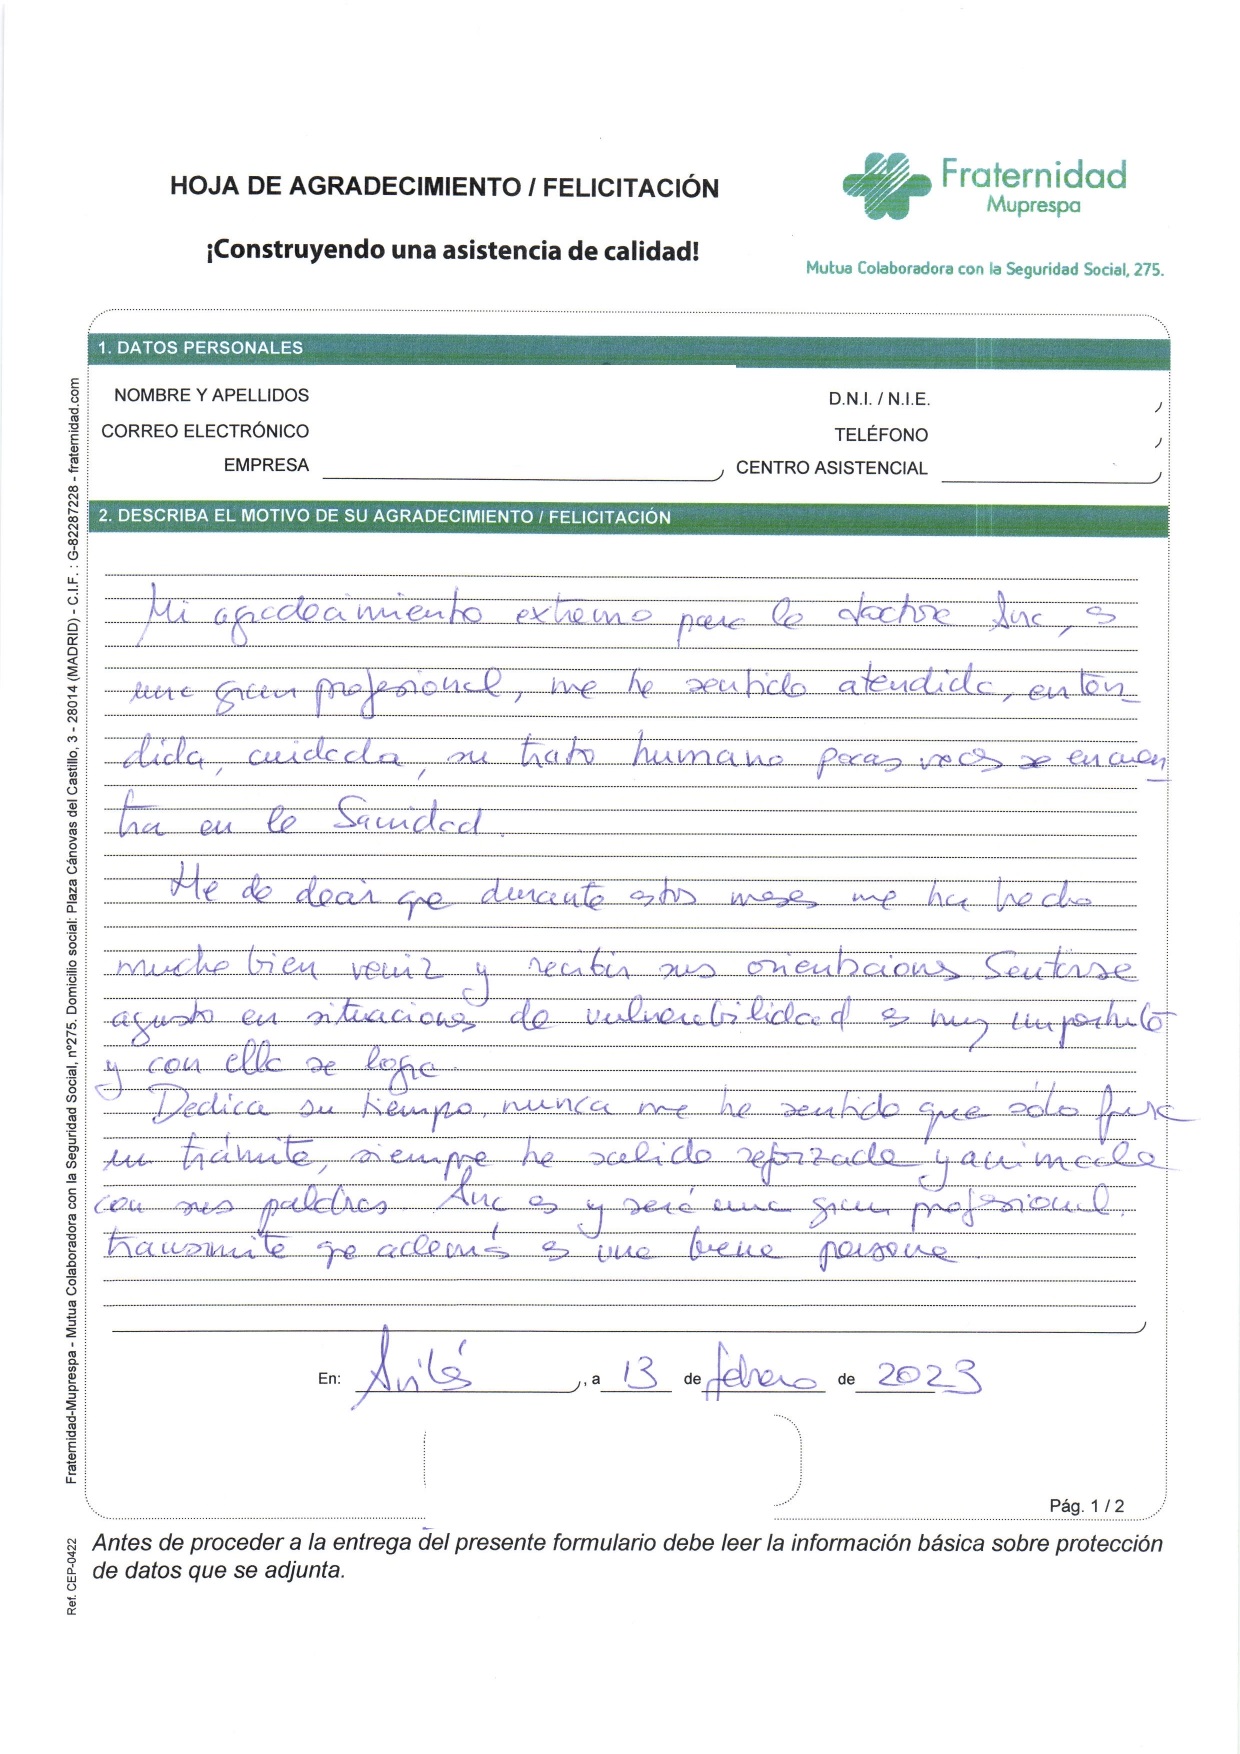 HOJA DE AGRADECIMIENTO / FELICITACIÓN
¡Construyendo una asistencia de calidad!
Fraternidad
Muprespa
Mutua Colaboradora con la Seguridad Social, 275.
1. DATOS PERSONALES
NOMBRE Y APELLIDOS
D.N.I. / N.I.E.
CORREO ELECTRÓNICO
TELÉFONO
EMPRESA
CENTRO ASISTENCIAL
2. DESCRIBA EL MOTIVO DE SU AGRADECIMIENTO / FELICITACIÓN
Mi agradecimiento extremo para la doctora Ana, es
una gran profesional, me he sentido atendida, enten
dida, cuidada, su trato humano pocas veces se encuen
tra en la Sanidad.
He de decir que durante estos meses me ha hecho
mucho bien venir y recibir sus orientaciones Sentirse
agusto en situaciones de vulnerabilidad es muy importante
y con ella se logra.
Dedica su tiempo, nunca me he sentido que sólo fuese
un trámite, siempre he salido reforzada y animada
con sus palabras Ana es y será una gran profesional.
transmite que además es una buena persona
En: Avilés, a 13 de febrero de 2023
Pág. 1 / 2
Antes de proceder a la entrega del presente formulario debe leer la información básica sobre protección
de datos que se adjunta.
Fraternidad-Muprespa - Mutua Colaboradora con la Seguridad Social, nº275. Domicilio social: Plaza Cánovas del Castillo, 3 - 28014 (MADRID) - C.I.F. : G-82287228 - fraternidad.com
Ref. CEP-0422